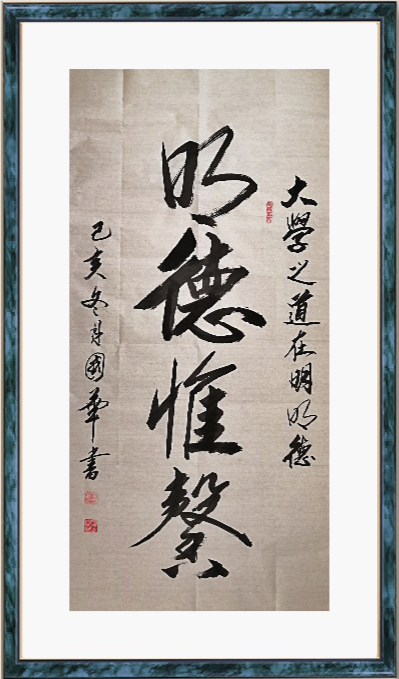 大學之道在明明德
明德惟馨
己亥冬月國華書